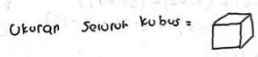 Ukuran Seluruh kubus =